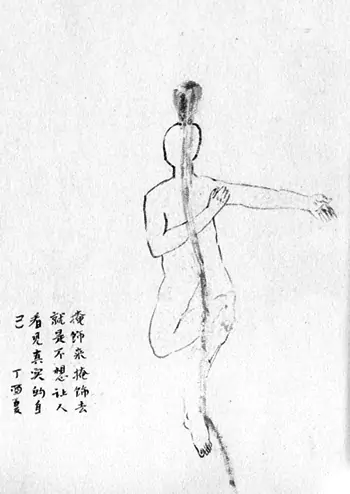 掩饰来掩饰去
就是不想让人
看见真实的自
己
丁酉夏